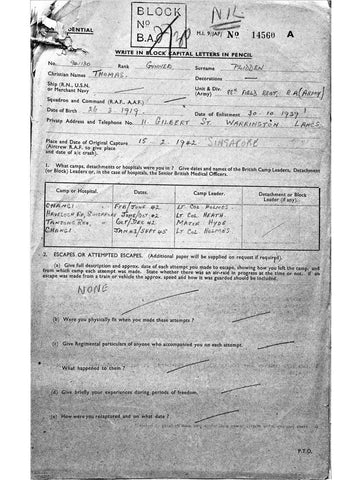 BLOCK
No
B.A.
NIL
DENTIAL
M.I. 9/JAP/ No 14560 A
WRITE IN BLOCK CAPITAL LETTERS IN PENCIL
No. Rank GUNNER Surname
Christian Names THOMAS. Decorations
Ship (R.N., U.S.N. or Merchant Navy Unit & Div. (Army) FIELD REGT. R A (ARMY)
Squadron and Command (R.A.F., A.A.F.)
Date of Birth 26 3 1919. Date of Enlistment 30 10 1939
Private Address and Telephone No. 11. GILBERT ST. WARRINGTON LANCS.
Place and Date of Original Capture 15 2 1942 SINGAPORE
(Aircrew R.A.F. to give place
and date of a/c crash).
1. What camps, detachments or hospitals were you in? Give dates and names of the British Camp Leaders, Detachment
(or Block) Leaders or, in case of the hospitals, the Senior British Medical Officers.
Camp or Hospital. Dates. Camp Leader. Detachment or Block Leader (if any).
CHANGI FEB/JUNE 42 LT COL HOLMES
HAVELOCK RD, JUNE/OCT 42 LT COL HEATH
OCT/DEC 42 MAJOR HYDE
CHANGI JAN 43/SEPT 45 LT COL HOLMES
2. ESCAPES OR ATTEMPTED ESCAPES. (Additional paper will be supplied on request if required).
(a) Give full description and approx. date of each attempt you made to escape, showing how you left the camp, and
from which camp each attempt was made. State whether there was an air-raid in progress at the time or not. If an
escape was made from a train or vehicle the approx. speed and how it was guarded should be included.
NONE
(b) Were you physically fit when you made these attempts?
(c) Give Regimental particulars of anyone who accompanied you on each attempt.
What happened to them?
(d) Give briefly your experiences during periods of freedom.
(e) How were you recaptured and on what date?
P.T.O.